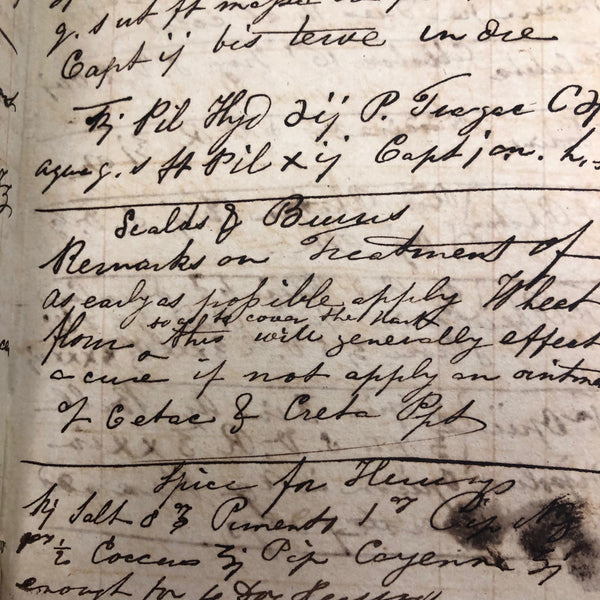 g. s ut ft
Capt ij bis terve in die
Pil Hyd ʒij P. Tragac C
aquæ q. s ft Pil xij Capt j om. h. s
Scalds & Burns
Remarks on Treatment of
as early as possible apply Wheat
flour so as to cover the part this will generally effect
a cure if not apply an ointm
of Cetac & Creta Ppt
Spice for Herrings
Salt 8 ℥ Pimento 1 Pip
½ Coccus Pip Cayenne
enough for 6 Doz